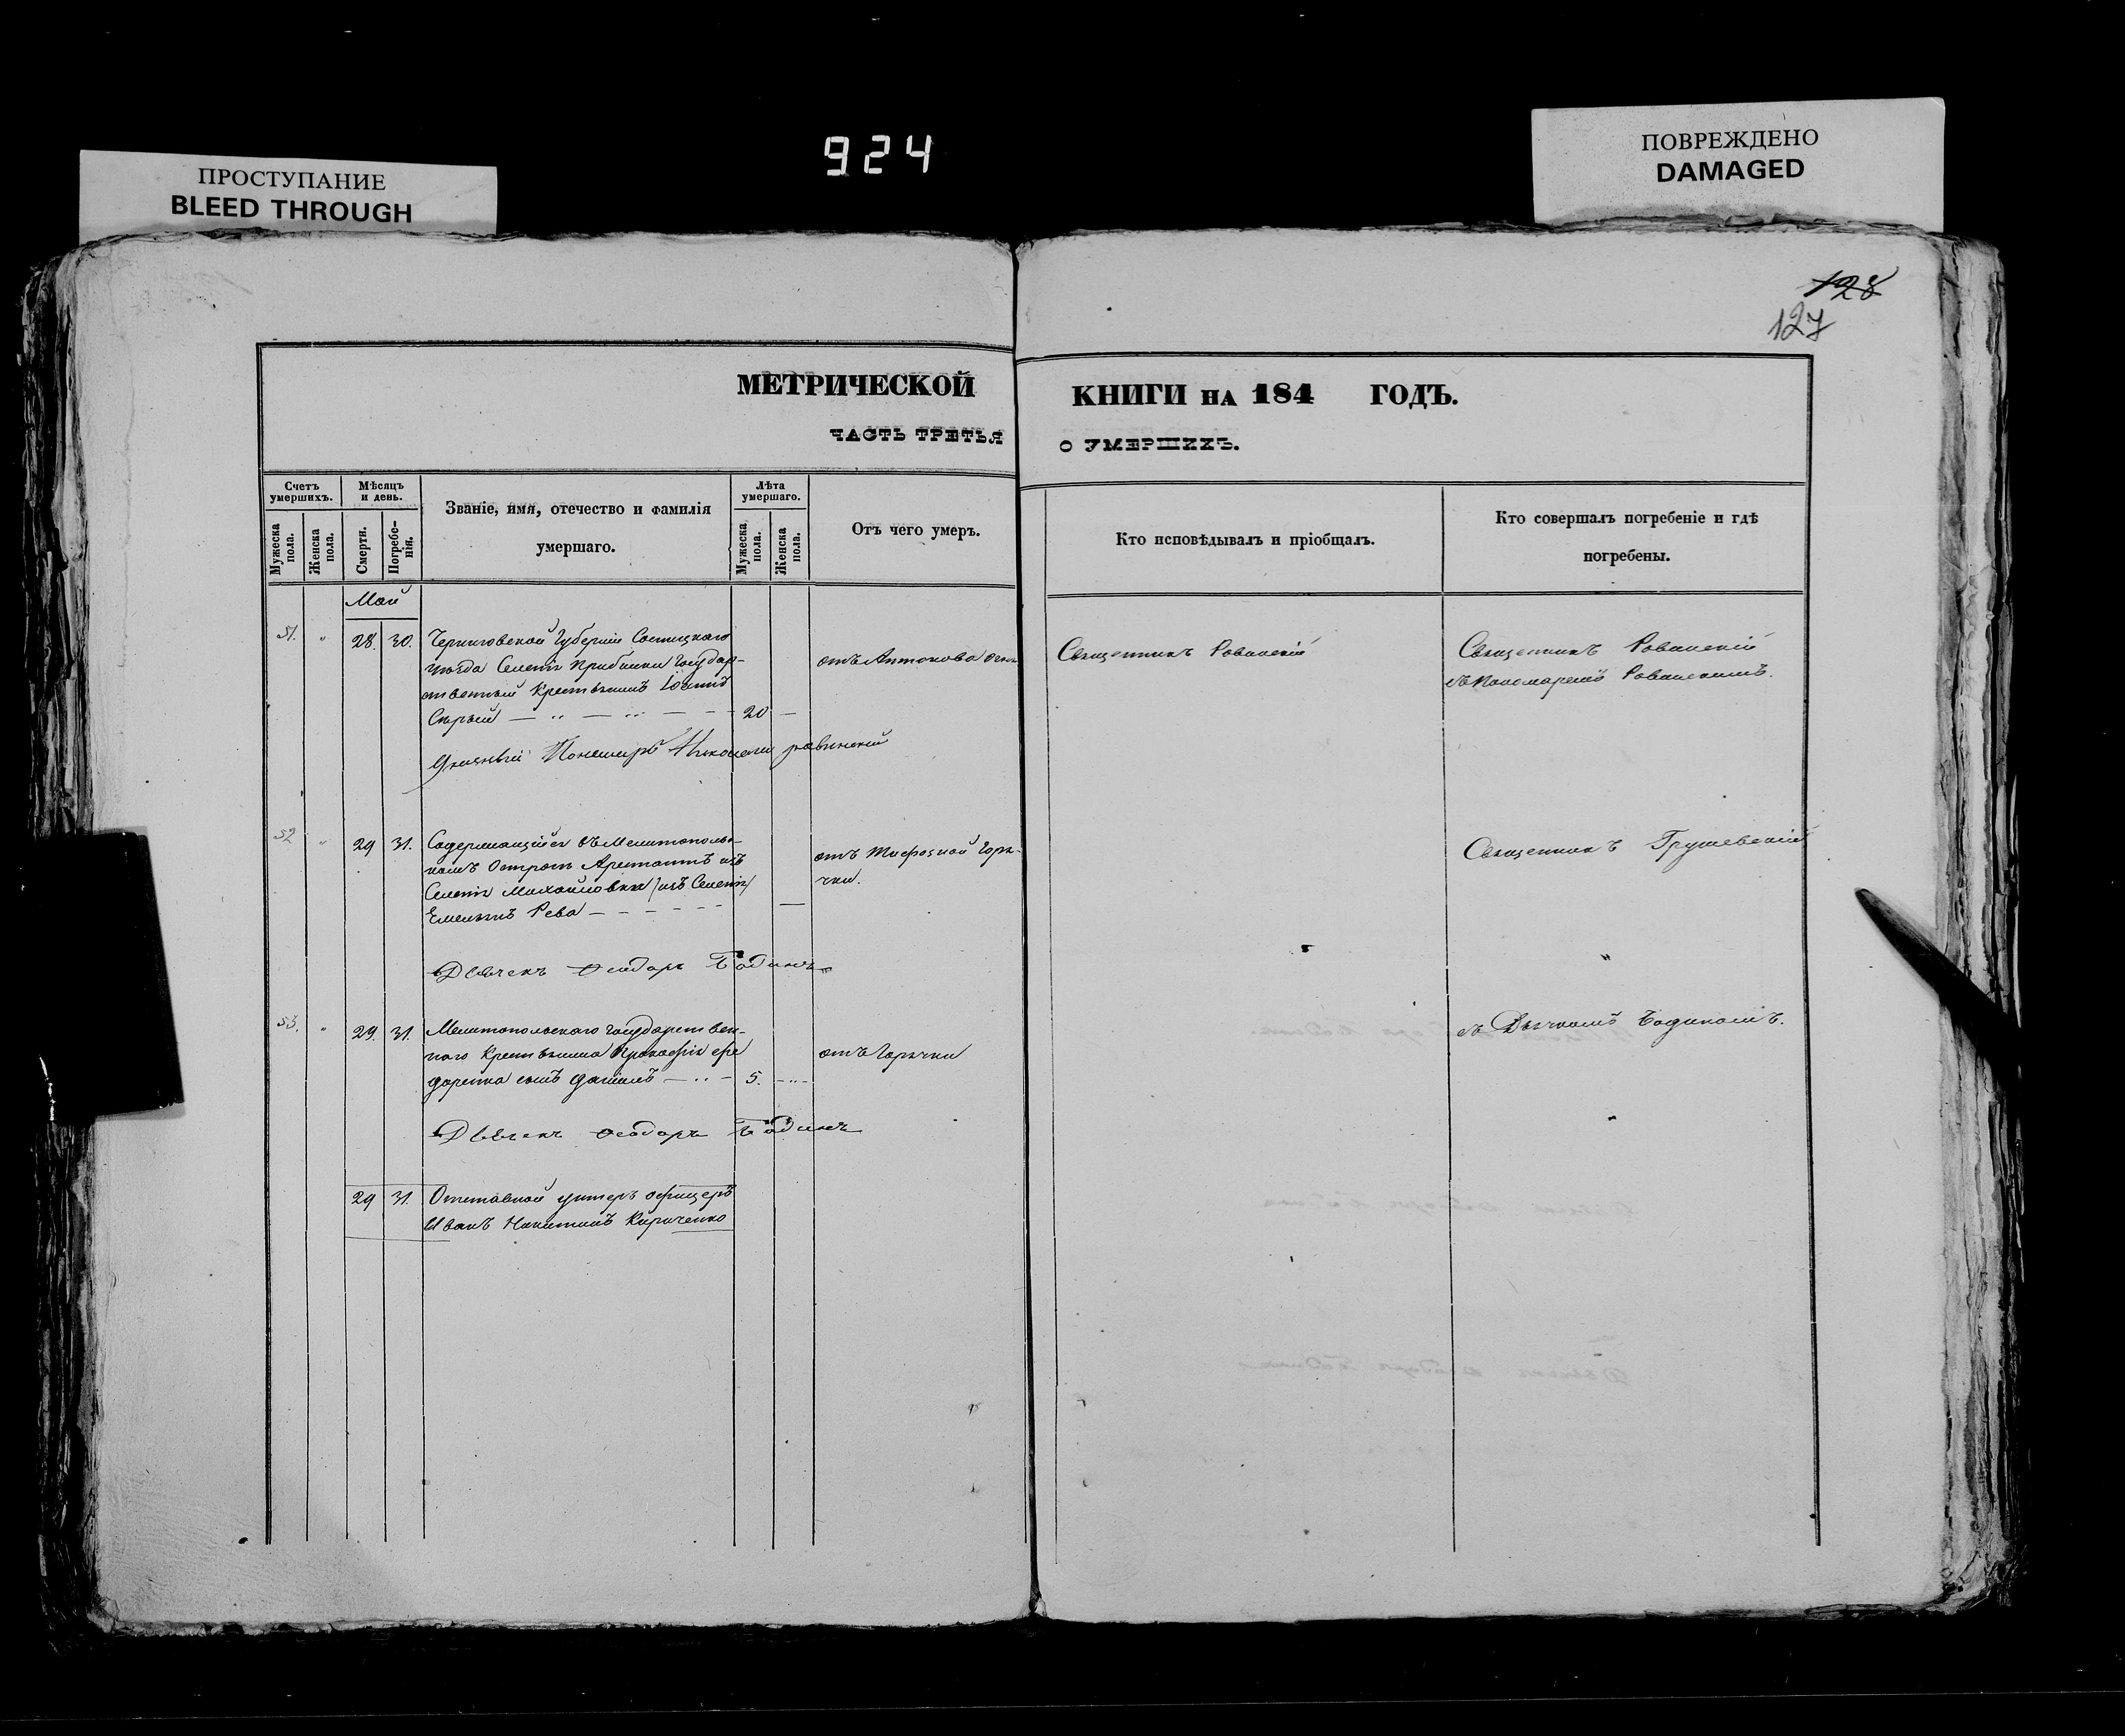 924
ПРОСТУПАНИЕ
BLEED THROUGH
ПОВРЕЖДЕНО
DAMAGED
128
127
МЕТРИЧЕСКОЙ КНИГИ НА 184 ГОДЪ.
ЧАСТЬ ТРЕТЬЯ О УМЕРШИХЪ.
Счетъ умершихъ.
Мужеска пола.
Женска пола.
Мѣсяцъ и день.
Смерти.
Погребенія.
Званіе, имя, отечество и фамилія
умершаго.
Лѣта умершаго.
Мужеска пола.
Женска пола.
Отъ чего умеръ.
Кто исповѣдывалъ и пріобщалъ.
Кто совершалъ погребеніе и гдѣ
погребены.
Май
51. " 28. 30. Черниговской Губерніи Сосницкаго
уѣзда Селенія Прибинки Государ-
ственный Крестьянинъ
Сѣрый 20 —
отъ Антонова огня
Священникъ Рованскій
Священникъ Рованскій
съ Пономаремъ Рованскимъ.
Пономарь Николай
52 " 29 31. Содержащійся въ Мелитополь-
комъ Острогѣ Арестантъ изъ
Селенія Михайловки /изъ Селенія/
Емельянъ Рева —
отъ Тифозной Горя-
чки.
Священникъ Грушевскій
Дьячекъ Феодоръ Бодинъ
53. " 29. 31. Мелитопольскаго Государствен-
наго Крестьянина Прокофія
сынъ Даніилъ 5.
отъ Горячки
съ Дьячкомъ
Дьячекъ Феодоръ Бодинъ
29 31. Отставной унтеръ офицеръ
Иванъ Никитинъ Кириченко